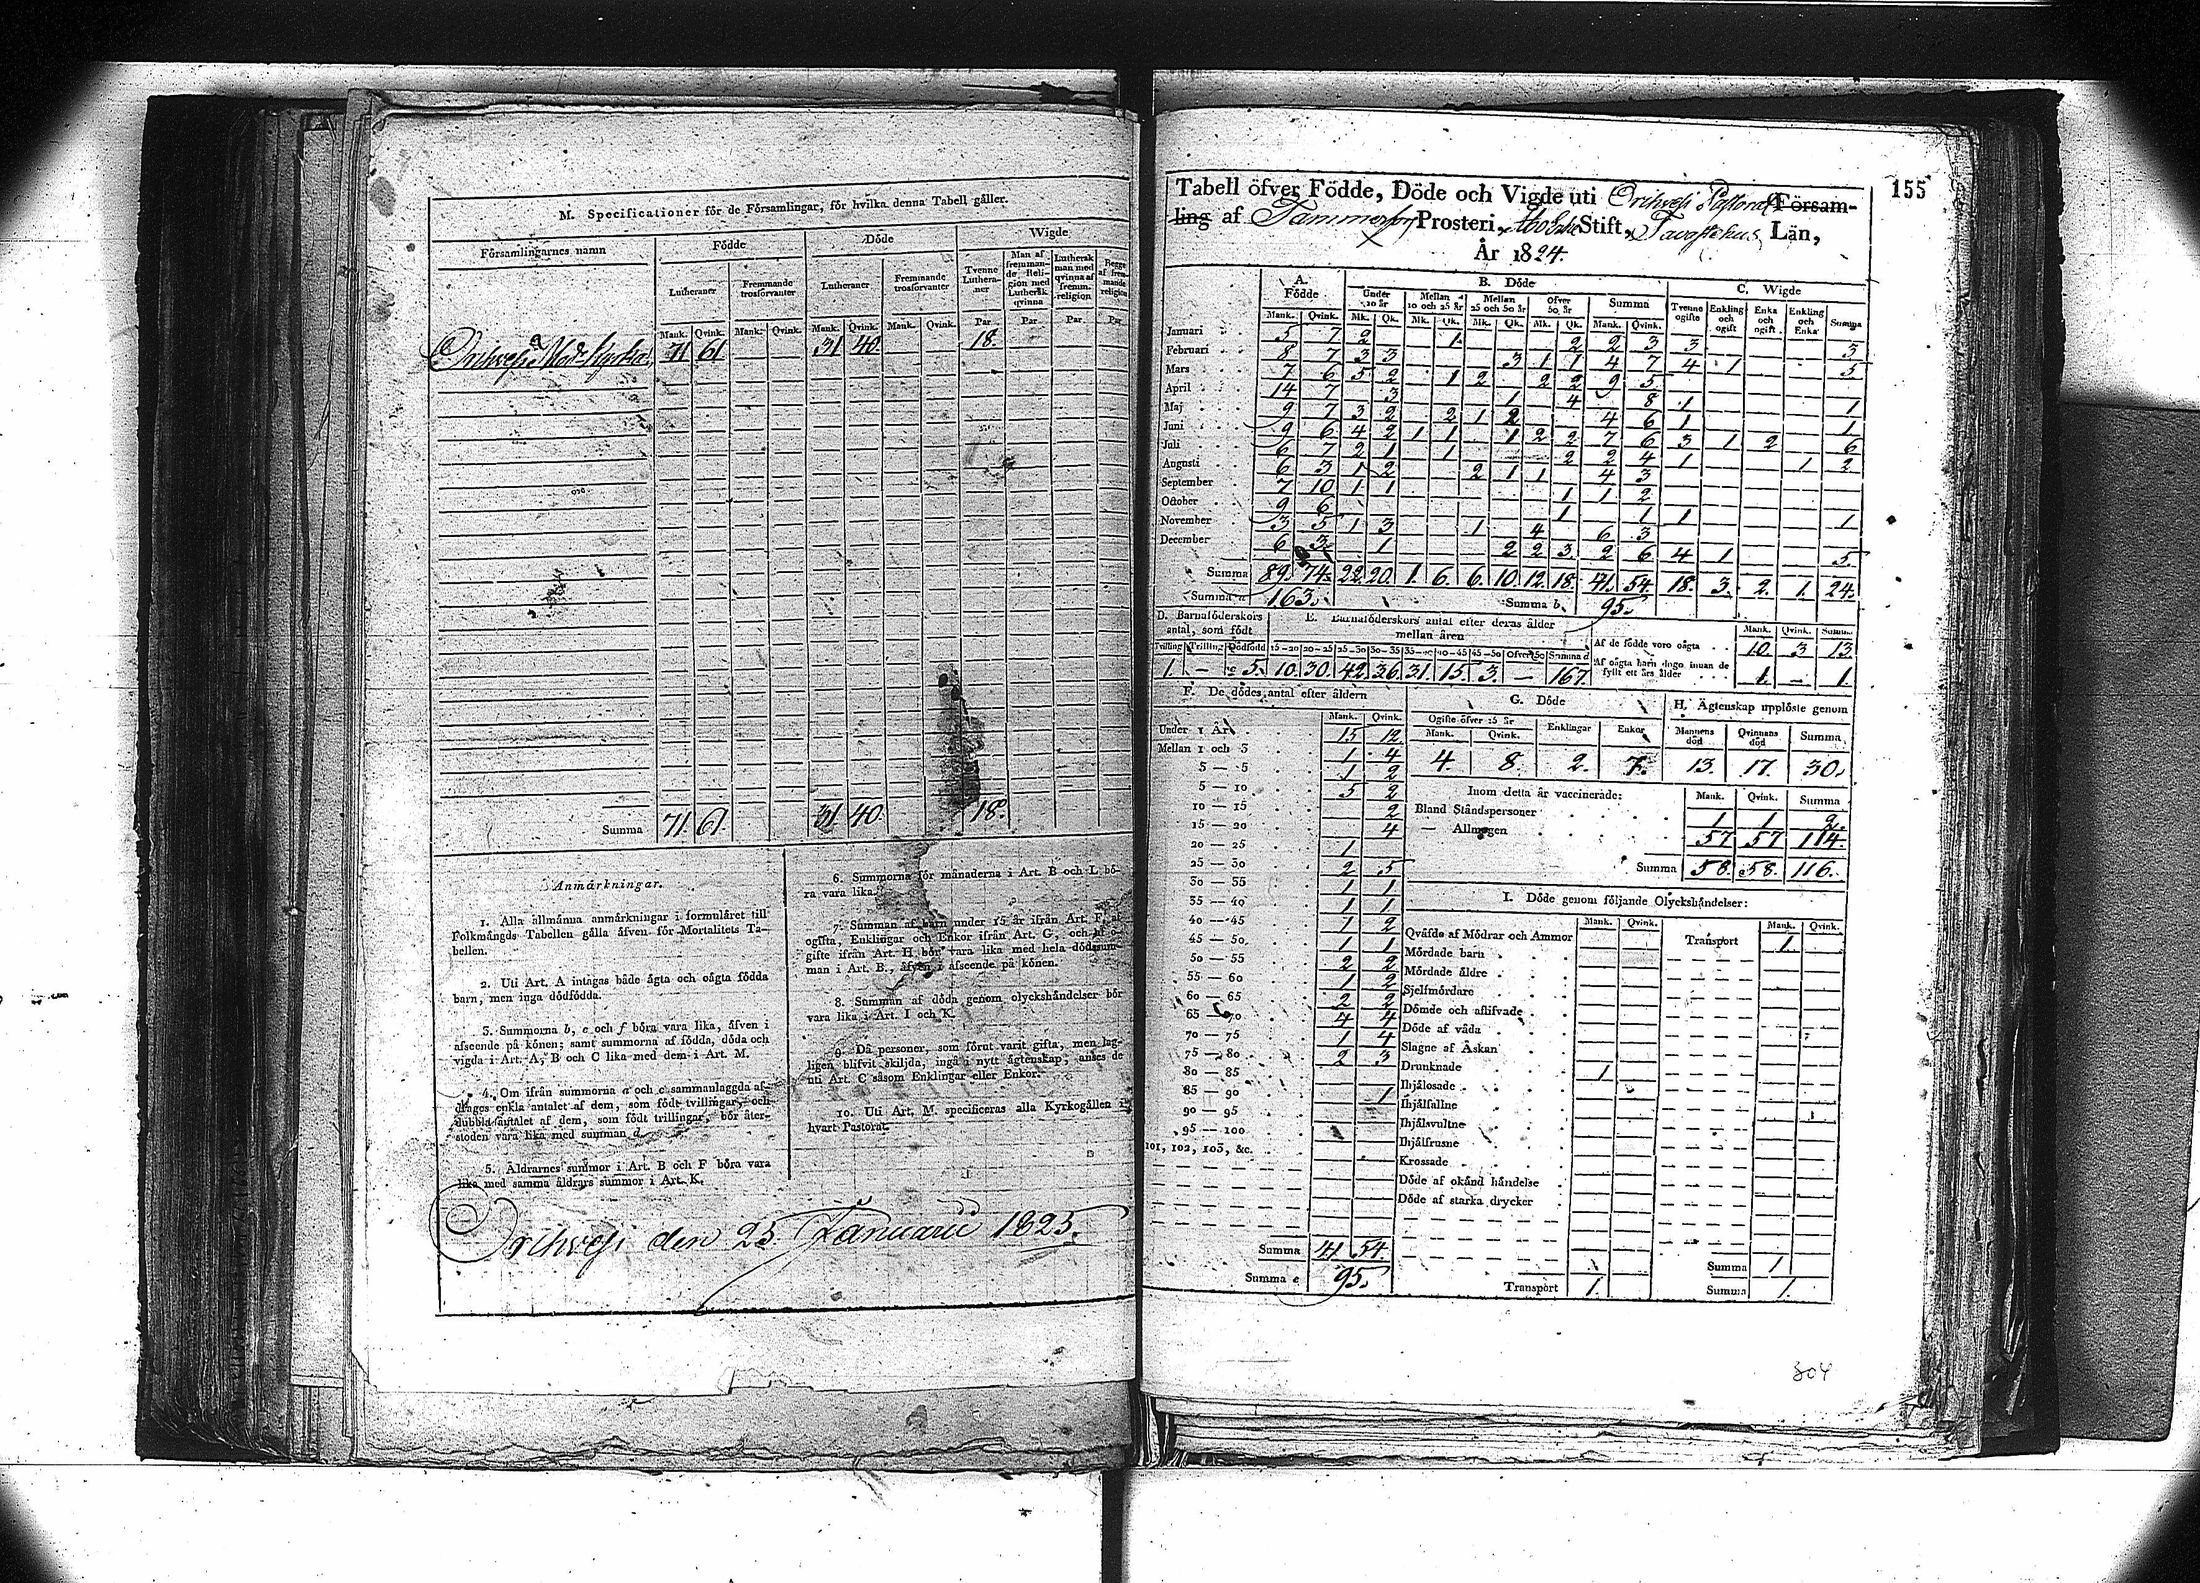 M. Specificationer för de Församlingar, för hvilka denna Tabell gäller.
Församlingarnes namn
Födde
Döde
Wigde
Lutheraner
Fremmande trosförvanter
Lutheraner
Fremmande trosförvanter
Tvenne Lutheraner
Man af fremmande Religion med Luthersk qvinna
Luthersk man med qvinna af fremm. religion
Begge af fremmande religion
Mank. Qvink. Mank. Qvink. Mank. Qvink. Mank. Qvink. Par Par Par Par
Orihvesi 71 61 31 40 18.
Summa 71 61 31 40 18.
Anmärkningar.
1. Alla allmänna anmärkningar i formuläret till
Folkmängds Tabellen gälla äfven för Mortalitets Ta-
bellen.
2. Uti Art. A intagas både ägta och oägta födda
barn, men inga dödfödda.
3. Summorna b, e och f böra vara lika, äfven i
afseende på könen; samt summorna af födda, döda och
vigda i Art. A, B och C lika med dem i Art. M.
4. Om ifrån summorna a och c sammanlaggda af-
drages enkla antalet af dem, som födt tvillingar, och
dubbla antalet af dem, som födt trillingar, bör åter-
stoden vara lika med summan d.
5. Åldrarnes summor i Art. B och F böra vara
lika med samma åldrars summor i Art. K.
6. Summorna för månaderna i Art. B och L bö-
ra vara lika.
7. Summan af barn under 15 år ifrån Art. F, af
ogifta, Enklingar och Enkor ifrån Art. G, och af
gifte ifrån Art. H bör vara lika med hela dödssum-
man i Art. B., äfven i afseende på könen.
8. Summan af döda genom olyckshändelser bör
vara lika i Art. I och K.
9. Då personer, som förut varit gifta, men lag-
ligen blifvit skiljda, ingå i nytt ägtenskap, anses de
uti Art. C såsom Enklingar eller Enkor.
10. Uti Art. M. specificeras alla Kyrkogällen i
hvart Pastorat.
Orihvesi den 25 Januarii 1825.
155
Tabell öfver Födde, Döde och Vigde uti Orihvesi Pastorat Församling
af Tammerfors Prosteri, Åbo Stift, Tavastehus Län,
År 1824.
A. Födde
B. Döde
C. Wigde
Under 10 år
Mellan 10 och 25 år
Mellan 25 och 50 år
Öfver 50 år
Summa
Tvenne ogifte
Enkling och ogift
Enka och ogift
Enkling och Enka
Summa
Mank. Qvink. Mk. Qk. Mk. Qk. Mk. Qk. Mk. Qk. Mank. Qvink.
Januari 5 7 2 1 2 2 3 3 3
Februari 8 7 3 3 3 1 1 4 7 4 1 5
Mars 7 6 5 2 1 2 2 2 9 5
April 14 7 3 1 4 8 1 1
Maj 9 7 3 2 2 1 2 4 6 1 1
Juni 9 6 4 2 1 1 1 2 2 7 6 3 1 2 6
Juli 6 7 2 1 1 2 2 4 1 1 2
Augusti 6 3 1 2 2 1 1 4 3
September 7 10 1 1 1 1 2
October 9 6 1 1 1 1
November 3 5 1 3 1 4 6 3
December 6 3 1 2 2 3 2 6 4 1 5
Summa 89. 74. 22. 20. 1. 6. 6. 10. 12. 18. 41. 54. 18. 3. 2. 1. 24.
Summa a 163. Summa b 95.
D. Barnaföderskors antal, som födt
E. Barnaföderskors antal efter deras ålder mellan åren
Tvilling Trilling Dödfödd 15—20 20—25 25—30 30—35 35—40 40—45 45—50 Öfver 50 Summa d
1. — c 5. 10. 30. 42. 36. 31. 15. 3. — 167.
Mank. Qvink. Summa
Af de födde voro oägta 10 3 13
Af oägta barn dogo innan de fyllt ett års ålder 1. — 1.
F. De dödes antal efter åldern
Mank. Qvink.
Under 1 År 15 12
Mellan 1 och 3 1 4
3 — 5 1 2
5 — 10 5 2
10 — 15 2
15 — 20 4
20 — 25 1
25 — 30 2 5
30 — 35 1 1
35 — 40 1 1
40 — 45 1 2
45 — 50 1 1
50 — 55 2 2
55 — 60 1 2
60 — 65 2 2
65 — 70 4 4
70 — 75 1 4
75 — 80 2 3
80 — 85
85 — 90 1
90 — 95
95 — 100
101, 102, 103, &c.
Summa 41 54.
Summa e 95.
G. Döde
Ogifte öfver 15 år
Enklingar
Enkor
Mank. Qvink.
4. 8. 2. 7.
H. Ägtenskap upplöste genom
Mannens död
Qvinnans död
Summa
13. 17. 30.
Inom detta år vaccinerade: Mank. Qvink. Summa
Bland Ståndspersoner 1 1 2.
— Allmogen 57 57 114.
Summa 58. 58. 116.
I. Döde genom följande Olyckshändelser:
Mank. Qvink. Mank. Qvink.
Qväfde af Mödrar och Ammor Transport 1.
Mördade barn
Mördade äldre
Sjelfmördare
Dömde och aflifvade
Döde af våda
Slagne af Åskan
Drunknade 1
Ihjälosade
Ihjälfallne
Ihjälsvultne
Ihjälfrusne
Krossade
Döde af okänd händelse
Döde af starka drycker
Summa 1
Transport 1. Summa 1.
804